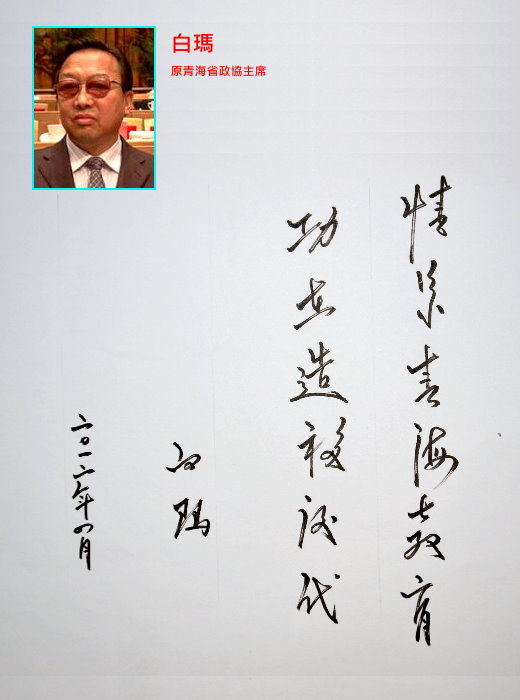 白瑪
原青海省政協主席
情系青海教育
功在造福后代
白瑪
二〇一二年四月